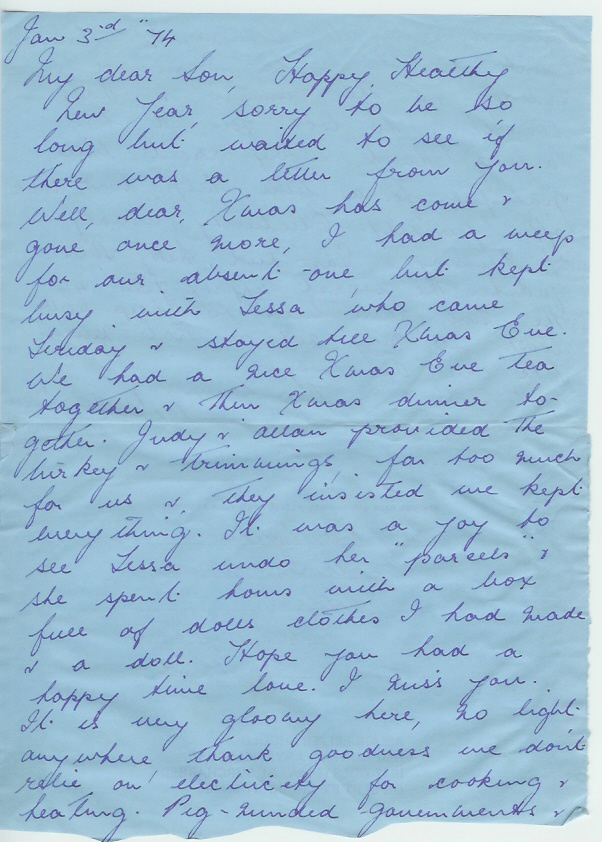 Jan 3rd "74
My dear Son, Happy, Healthy
New Year, sorry to be so
long but waited to see if
there was a letter from you.
Well, dear, Xmas has come &
gone once more, I had a weep
for our absent one but kept
busy with Tessa who came
Sunday & stayed till Xmas Eve.
We had a nice Xmas Eve tea
together & then Xmas dinner to-
gether. Judy & Allan provided the
turkey & trimmings, far too much
for us &, they insisted we kept
everything. It was a joy to
see Tessa undo her "parcels" &
she spent hours with a box
full of dolls clothes I had made
& a doll. Hope you had a
happy time love. I miss you.
It is very gloomy here, no light
anywhere thank goodness we don't
relie on electricity for cooking &
heating. Pig-minded governments &